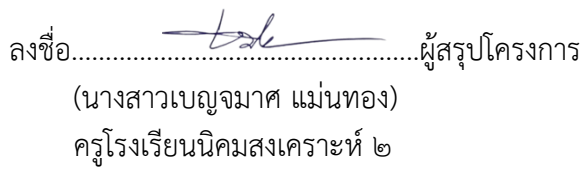 ลงชื่อ............................................................ผู้สรุปโครงการ
(นางสาวเบญจมาศ แม่นทอง)
ครูโรงเรียนนิคมสงเคราะห์ ๒